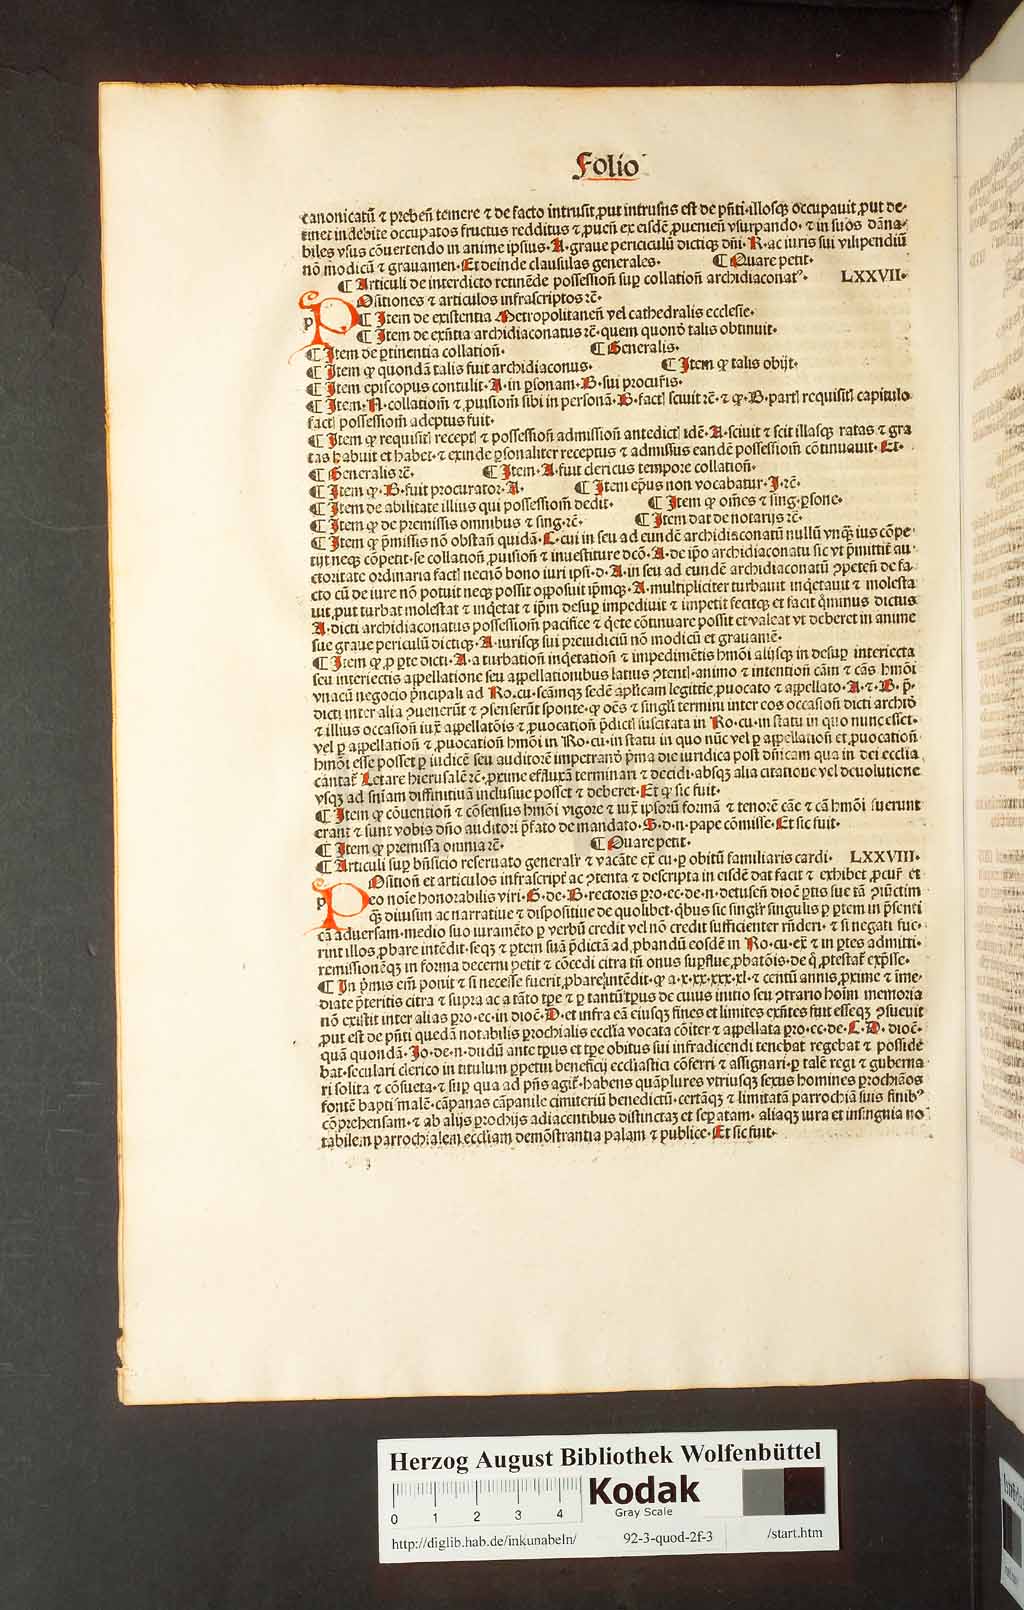 Folio
canonicatū ⁊ prebeñ temere ⁊ de facto intrusit, put intrusus est de pñti. illosq̄ occupauit, put de-
tinet indebite occupatos fructus redditus ⁊ ꝓueñ ex eisdē ꝓueniēn vsurpando. ⁊ in suos dāna-
biles vsus cōuertendo in anime ipsius. A. graue periculū dictiq̄ dñi. R. ac iuris sui vilipendiū
nō modicū ⁊ grauamen. Et deinde clausulas generales. ¶ Quare petit.
¶ Articuli de interdicto retinēde possessioñ suꝑ collatioñ archidiaconatꝰ. LXXVII.
p Positiones ⁊ articulos infrascriptos rē.
¶ Item de existentia Metropolitaneñ vel cathedralis ecclesie.
¶ Item de exñtia archidiaconatus rē. quem quonō talis obtinuit.
¶ Item de ꝑtinentia collatioñ. ¶ Generalis.
¶ Item ꝙ quondā talis fuit archidiaconus. ¶ Item ꝙ talis obijt.
¶ Item episcopus contulit. A. in ꝑsonam. B. sui procur̄is.
¶ Item. A. collatiom̄ ⁊ ꝓuisiom̄ sibi in personā. B. factꝭ sciuit rē. ⁊ ꝙ. B. partꝭ requisitꝭ capitulo
factꝭ possessiom̄ adeptus fuit.
¶ Item ꝙ requisitꝭ receptꝭ ⁊ possessioñ admissioñ antedictꝭ idē. A. sciuit ⁊ scit illasq̄ ratas ⁊ gra
tas habuit et habet. ⁊ exinde ꝑsonaliter receptus ⁊ admissus eandē possessiom̄ cōtinuauit. Et.
¶ Generalis rē. ¶ Item. A. fuit clericus tempore collatioñ.
¶ Item ꝙ. B. fuit procurator. A. ¶ Item ep̄us non vocabatur. J. rē.
¶ Item de abilitate illius qui possessiom̄ dedit. ¶ Item ꝙ om̄es ⁊ sing. ꝑsone.
¶ Item ꝙ de premissis omnibus ⁊ sing. rē. ¶ Item dat de notarijs rē.
¶ Item ꝙ p̄missis nō obstañ quidā. L. cui in seu ad eundē archidiaconatū nullū vnq̄ ius cōpe-
tijt neq̄ cōpetit. se collatioñ ꝓuisioñ ⁊ inuestiture dcō. A. de ip̄o archidiaconatu sic vt p̄mittit̄ au-
ctoritate ordinaria factꝭ necnō bono iuri ipsi. d. A. in seu ad eundē archidiaconatū ꝯpeteñ de fa-
cto cū de iure nō potuit neq̄ possit opposuit ip̄mq̄. A. multipliciter turbauit inq̄etauit ⁊ molesta
uit, put turbat molestat ⁊ inq̄etat ⁊ ip̄m desuꝑ impediuit ⁊ impetit fecitq̄ et facit q̊minus dictus
A. dicti archidiaconatus possessioñ pacifice ⁊ q̄ete cōtinuare possit et valeat vt deberet in anime
sue graue periculū dictiq̄. A. iurisq̄ sui preiudiciū nō modicū et grauamē.
¶ Item ꝙ, ꝑ ꝑte dicti. A. a turbatioñ inq̄etatioñ ⁊ impedimētis hmōi alijsq̄ in desuꝑ interiecta
seu interiectis appellatione seu appellationibus latius ꝯtentꝭ. animo ⁊ intentioñ cām ⁊ cās hmōi
vnacū negocio p̄ncipali ad Ro. cu. seāmq̄ sedē aplicam legittie, ꝓuocato ⁊ appellato. A. ⁊. B. p̄-
dicti inter alia ꝯuenerūt ⁊ ꝯsenserūt sponte. ꝙ oēs ⁊ singl̄i termini inter eos occasioñ dicti archiō
⁊ illius occasioñ iux̄ appellatōis ⁊ ꝓuocatioñ p̄dictꝭ suscitata in Ro. cu. in statu in quo nunc esset.
vel ꝑ appellatioñ ⁊ ꝓuocatioñ hmōi in Ro. cu. in statu in quo nūc vel ꝑ appellatioñ et ꝓuocatioñ
hmōi esse posset ꝑ iudicē seu auditorē impetranō p̄ma die iuridica post dn̄icam qua in dei ecclia
cantat̄ Letare hierusalē rē. ꝓxime effluxā terminari ⁊ decidi. absq̄ alia citatione vel deuolutione
vsq̄ ad snīam diffinitiuā inclusiue posset ⁊ deberet. Et ꝙ sic fuit.
¶ Item ꝙ cōuentioñ ⁊ cōsensus hmōi vigore ⁊ iux̄ ipsorū formā ⁊ tenorē cāe ⁊ cā hmōi fuerunt
erant ⁊ sunt vobis dn̄o auditori p̄fato de mandato. S. d. n. pape cōmisse. Et sic fuit.
¶ Item ꝙ premissa omnia rē. ¶ Quare petit.
¶ Articuli suꝑ bn̄ficio reseruato generalr̄ ⁊ vacāte ex̄ cu. ꝑ obitū familiaris cardi. LXXVIII.
p Positioñ et articulos infrascript̄ ac ꝯtenta ⁊ descripta in eisdē dat facit ⁊ exhibet ꝓcur̄ et
eo noīe honorabilis viri. G. de. B. rectoris ꝑro. ec. de. n. detuseñ dioē ꝑtis sue tā ꝯiūctim
q̄ diuisim ac narratiue ⁊ dispositiue de quolibet. q̄bus sic singlr̄ singulis ꝑ ꝑtem in p̄senti
cā aduersam. medio suo iuramēto ꝑ verbū credit vel nō credit sufficienter rn̄deri. ⁊ si negati fue-
rint illos, ꝓbare intēdit. seq̄ ⁊ ꝑtem suā p̄dictā ad, ꝓbandū eosdē in Ro. cu. ex̄ ⁊ in ꝑtes admitti.
remissionēq̄ in forma decerni petit ⁊ cōcedi citra tn̄ onus suꝑflue, ꝓbatōis. de q̊, ꝓtestat̄ exp̄sse.
¶ In p̄mis em̄ ponit ⁊ si necesse fuerit, ꝓbare intēdit. ꝙ a. x. xx. xxx. xl. ⁊ centū annis, ꝓxime ⁊ ime-
diate p̄teritis citra ⁊ supra ac a tāto tꝑe ⁊ ꝑ tantū tꝑus de cuius initio seu ꝯtrario hoīm memoria
nō existit inter alias ꝑro. ec. in dioē. D. et infra eā eiusq̄ fines et limites exn̄tes fuit esseq̄ ꝯsueuit
, put est de pn̄ti quedā notabilis ꝑrochialis ecclia vocata cōiter ⁊ appellata ꝑro. ec. de. L. D. dioē.
quā quondā. Jo. de. n. dudū ante tꝑus et tꝑe obitus sui infradicendi tenebat regebat ⁊ posside
bat. seculari clerico in titulum ꝑpetui beneficij eccliastici cōferri ⁊ assignari. ꝑ talē regi ⁊ guberna
ri solita ⁊ cōsueta. ⁊ suꝑ qua ad pn̄s agit̄. habens quāplures vtriusq̄ sexus homines ꝑrochiāos
fontē baptismalē. cāpanas cāpanile cimiteriū benedictū. certāq̄ ⁊ limitatā parrochiā suis finibꝰ
cōprehensam. ⁊ ab alijs ꝑrochijs adiacentibus distinctaꝫ et seꝑatam. aliaq̄ iura et insingnia no
tabilem parrochialem eccliam demōstrantia palam ⁊ publice. Et sic fuit.
Herzog August Bibliothek Wolfenbüttel
0 1 2 3 4
Kodak
Gray Scale
http://diglib.hab.de/inkunabeln/ 92-3-quod-2f-3 /start.htm